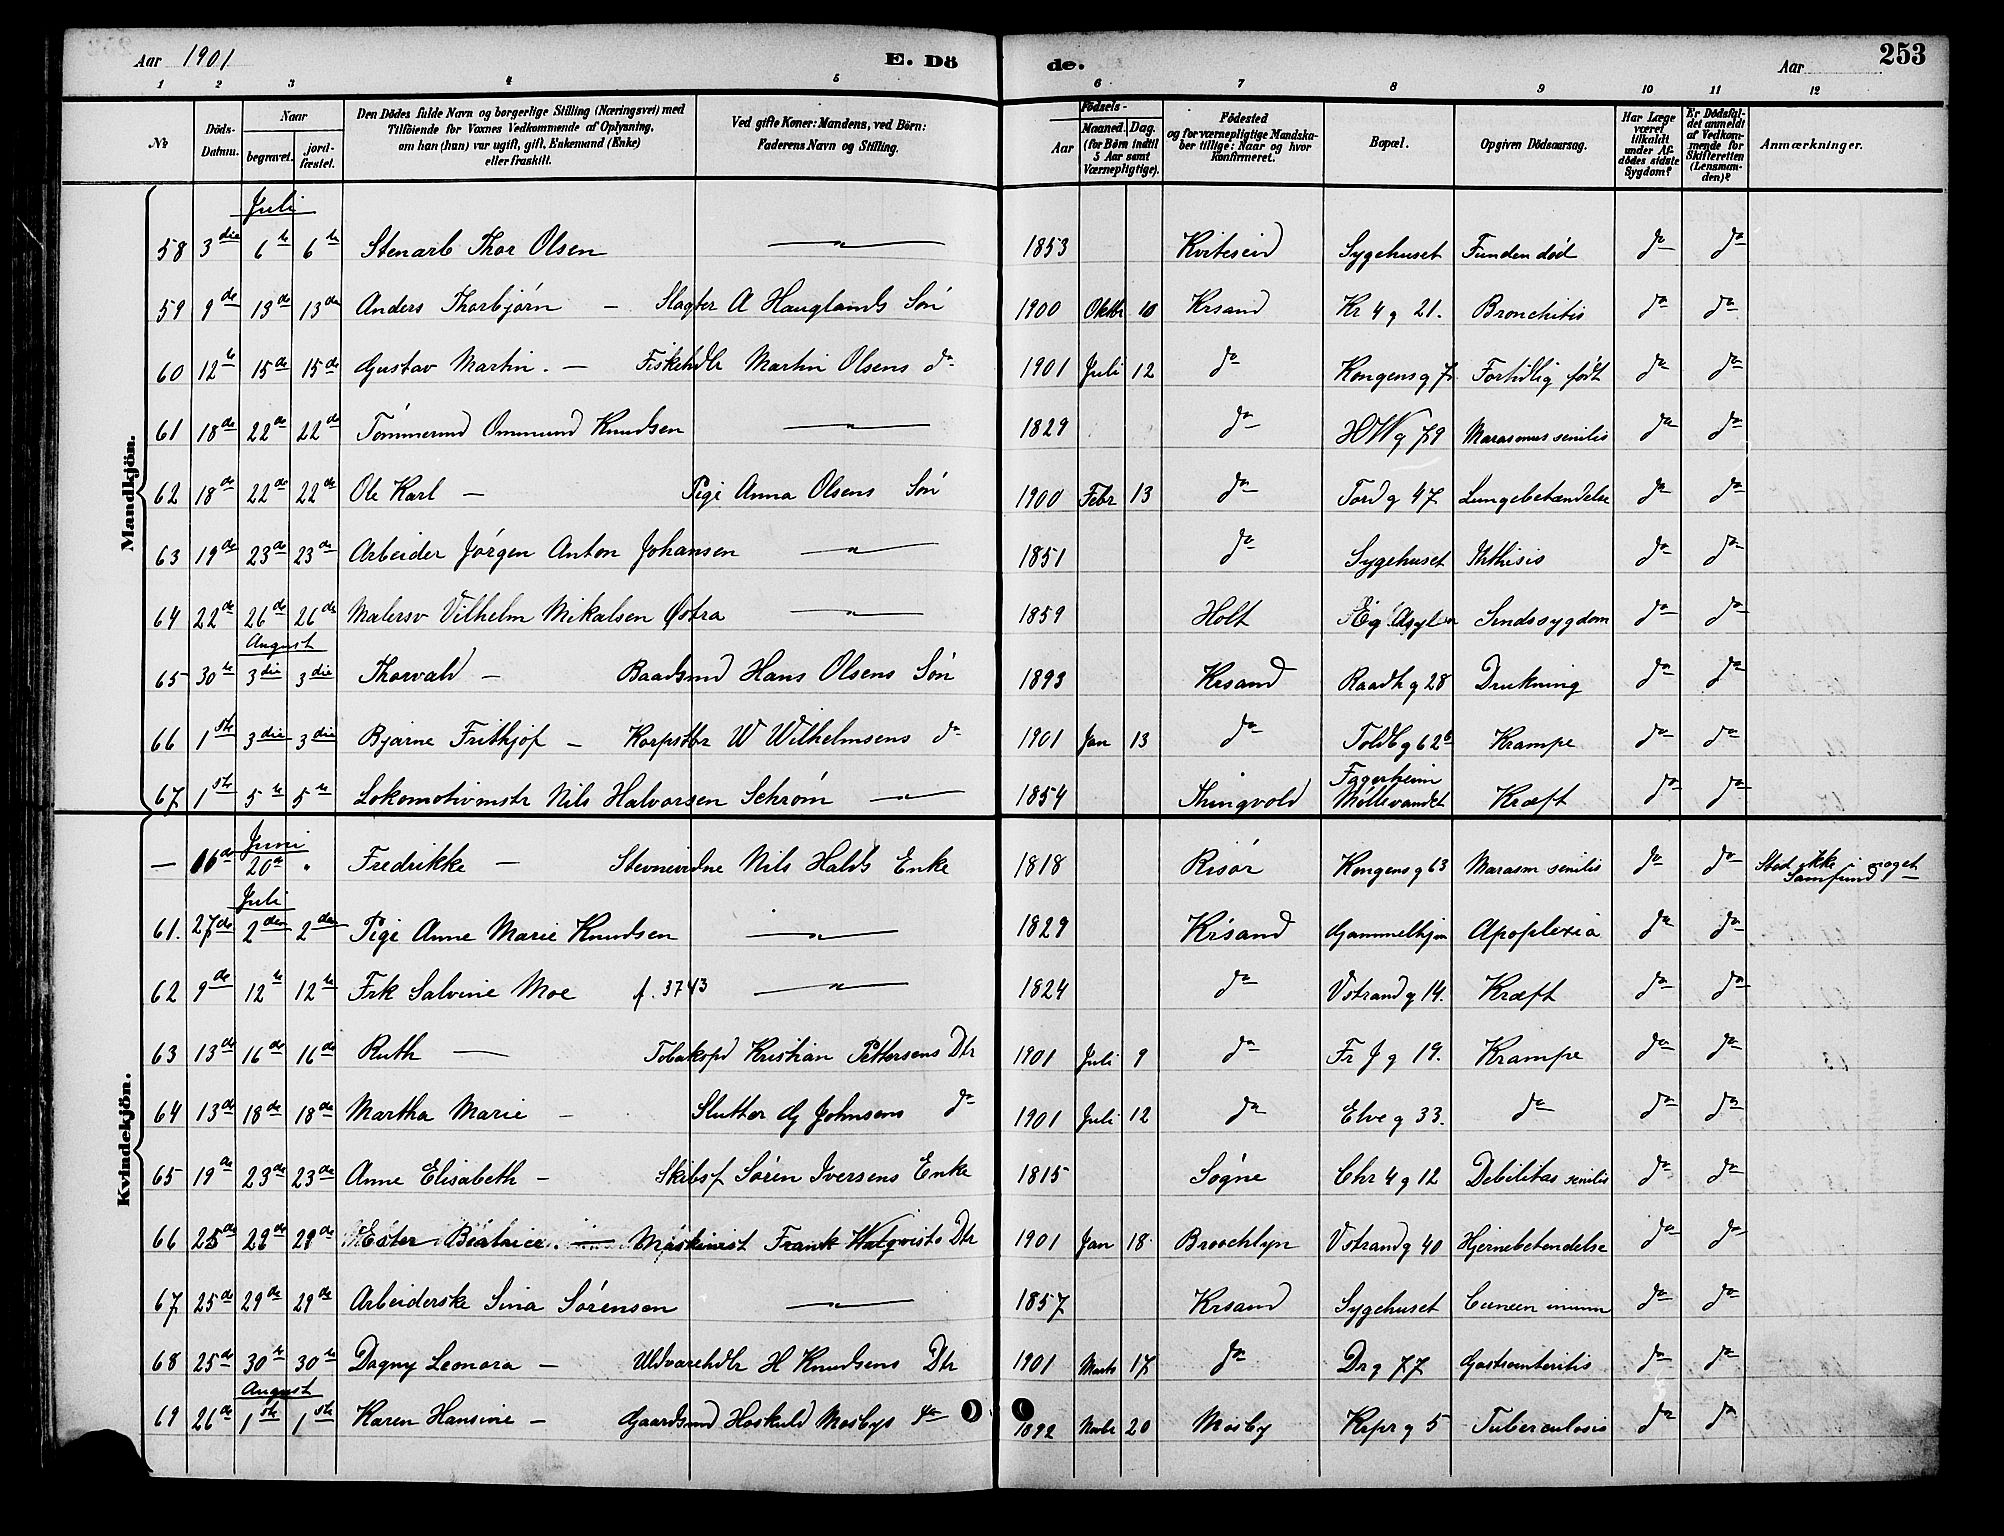 Aar 1901 E. Dö de. Aar 253
1 2 3 4 5 6 7 8 9 10 11 12
№ Döds-Datum. Naar begravet. jordfæstet. Den Dödes fulde Navn og borgerlige Stilling (Næringsvei) med Tilföiende for Voxnes Vedkommende af Oplysning, om han (hun) var ugift, gift, Enkemand (Enke) eller fraskilt. Ved gifte Koner: Mandens, ved Börn: Faderens Navn og Stilling. Födsels- Aar Maaned. Dag. (for Börn indtil 5 Aar samt Værnepligtige). Födested og for værnepligtige Mandskaber tillige: Naar og hvor Konfirmeret. Bopæl. Opgiven Dödsaarsag. Har Læge været tilkaldt under Afdödes sidste Sygdom? Er Dödsfaldet anmeldt af Vedkommende for Skifteretten (Lensmanden)? Anmærkninger.
Mandkjön.
Juli
58 3die 6te 6te Stenarb Thor Olsen — " — 1853 Kviteseid Sygehuset Funden død Ja Ja
59 9de 13de 13de Anders Thorbjørn — Slagter A Hauglands Søn 1900 Oktbr 10 Krsand Kr 4 g 21. Bronchitis Ja Ja
60 12te 15de 15de Gustav Martin. — Fiskehdlr Martin Olsens do 1901 Juli 12 do Kongensg 7 Fortidlig født Ja Ja
61 18de 22de 22de Tømmermd Ommund Knudsen — " — 1829 do HWg 79 Marasmus senilis Ja Ja
62 18de 22de 22de Ole Karl — Pige Anna Olsens Søn 1900 Febr 13 do Tord g 47 Lungebetændelse Ja Ja
63 19de 23de 23de Arbeider Jørgen Anton Johansen — " — 1851 do Sygehuset Phthisis Ja Ja
64 22de 26de 26de Malersv Vilhelm Mikalsen Østra — " — 1859 Holt Eg Asyl Sindssygdom Ja Ja
August
65 30te 3die 3die Thorvald — Baadsmd Hans Olsens Søn 1893 Krsand Raadh g 28 Drukning Ja Ja
66 1ste 3die 3die Bjarne Frithjof — Korpsktr W Wilhelmsens do 1901 Jan 13 do Toldb g 62b Krampe Ja Ja
67 1ste 5te 5te Lokomotivmstr Nils Halvorsen Schrøm — " — 1854 Thingvold Fagerheim Møllevandet Kræft Ja Ja
Kvindekjön.
Juni
— 16de 20de " Fredrikke — Nils Halds Enke 1818 Risør Kongensg 63 Marasm senilis Ja Ja Stod ikke i noget Samfund
Juli
61. 27de 2den 2den Pige Anne Marie Knudsen — " — 1829 Krsand Apoplexia Ja Ja
62 9de 12te 12te Frk Salvine Moe f. 3743 — " — 1824 do Vstrand g 14. Kræft Ja Ja
63 13de 16de 16de Ruth — Tobakspd Kristian Pettersens Dtr 1901 Juli 9 do Fr J g 19. Krampe Ja Ja
64 13de 18de 18de Martha Marie — Slutter G Johnsens do 1901 Juli 12 do Elve g 33. do Ja Ja
65 19de 23de 23de Anne Elisabeth — Skibsf Søren Iversens Enke 1815 Søgne Chr 4 g 12 Debilitas senilis Ja Ja
66 25de 29de 29de Ester Beatrice. — Maskinist Frank Walqvists Dtr 1901 Jan 18 Broochlyn Vstrandg 40 Hjernebetendelse Ja Ja
67 25de 29de 29de Arbeiderske Sina Sørensen — " — 1857 Krsand Sygehuset Ja Ja
68 25de 30te 30te Dagny Leonora — Uldvarehdlr H Knudsens Dtr 1901 Marts 17 do Dr g 77 Gastroenteritis Ja Ja
August
69 26de 1ste 1ste Karen Hansine — Gaardsmd Hoskuld Mosbys do 1892 Novbr 20 Mosby Krpr g 5 Tuberculosis Ja Ja